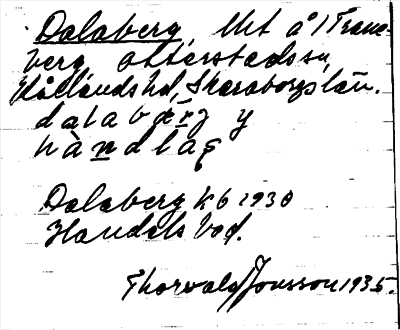 Dalaberg, lht å 1 Trane-
berg, Otterstads sn,
Kållands hd, Skaraborgs län.
dalabærj y
hàndlaṣ
Dalaberg kb 1930
Handelsbod.
Thorwald Jonsson 1935.